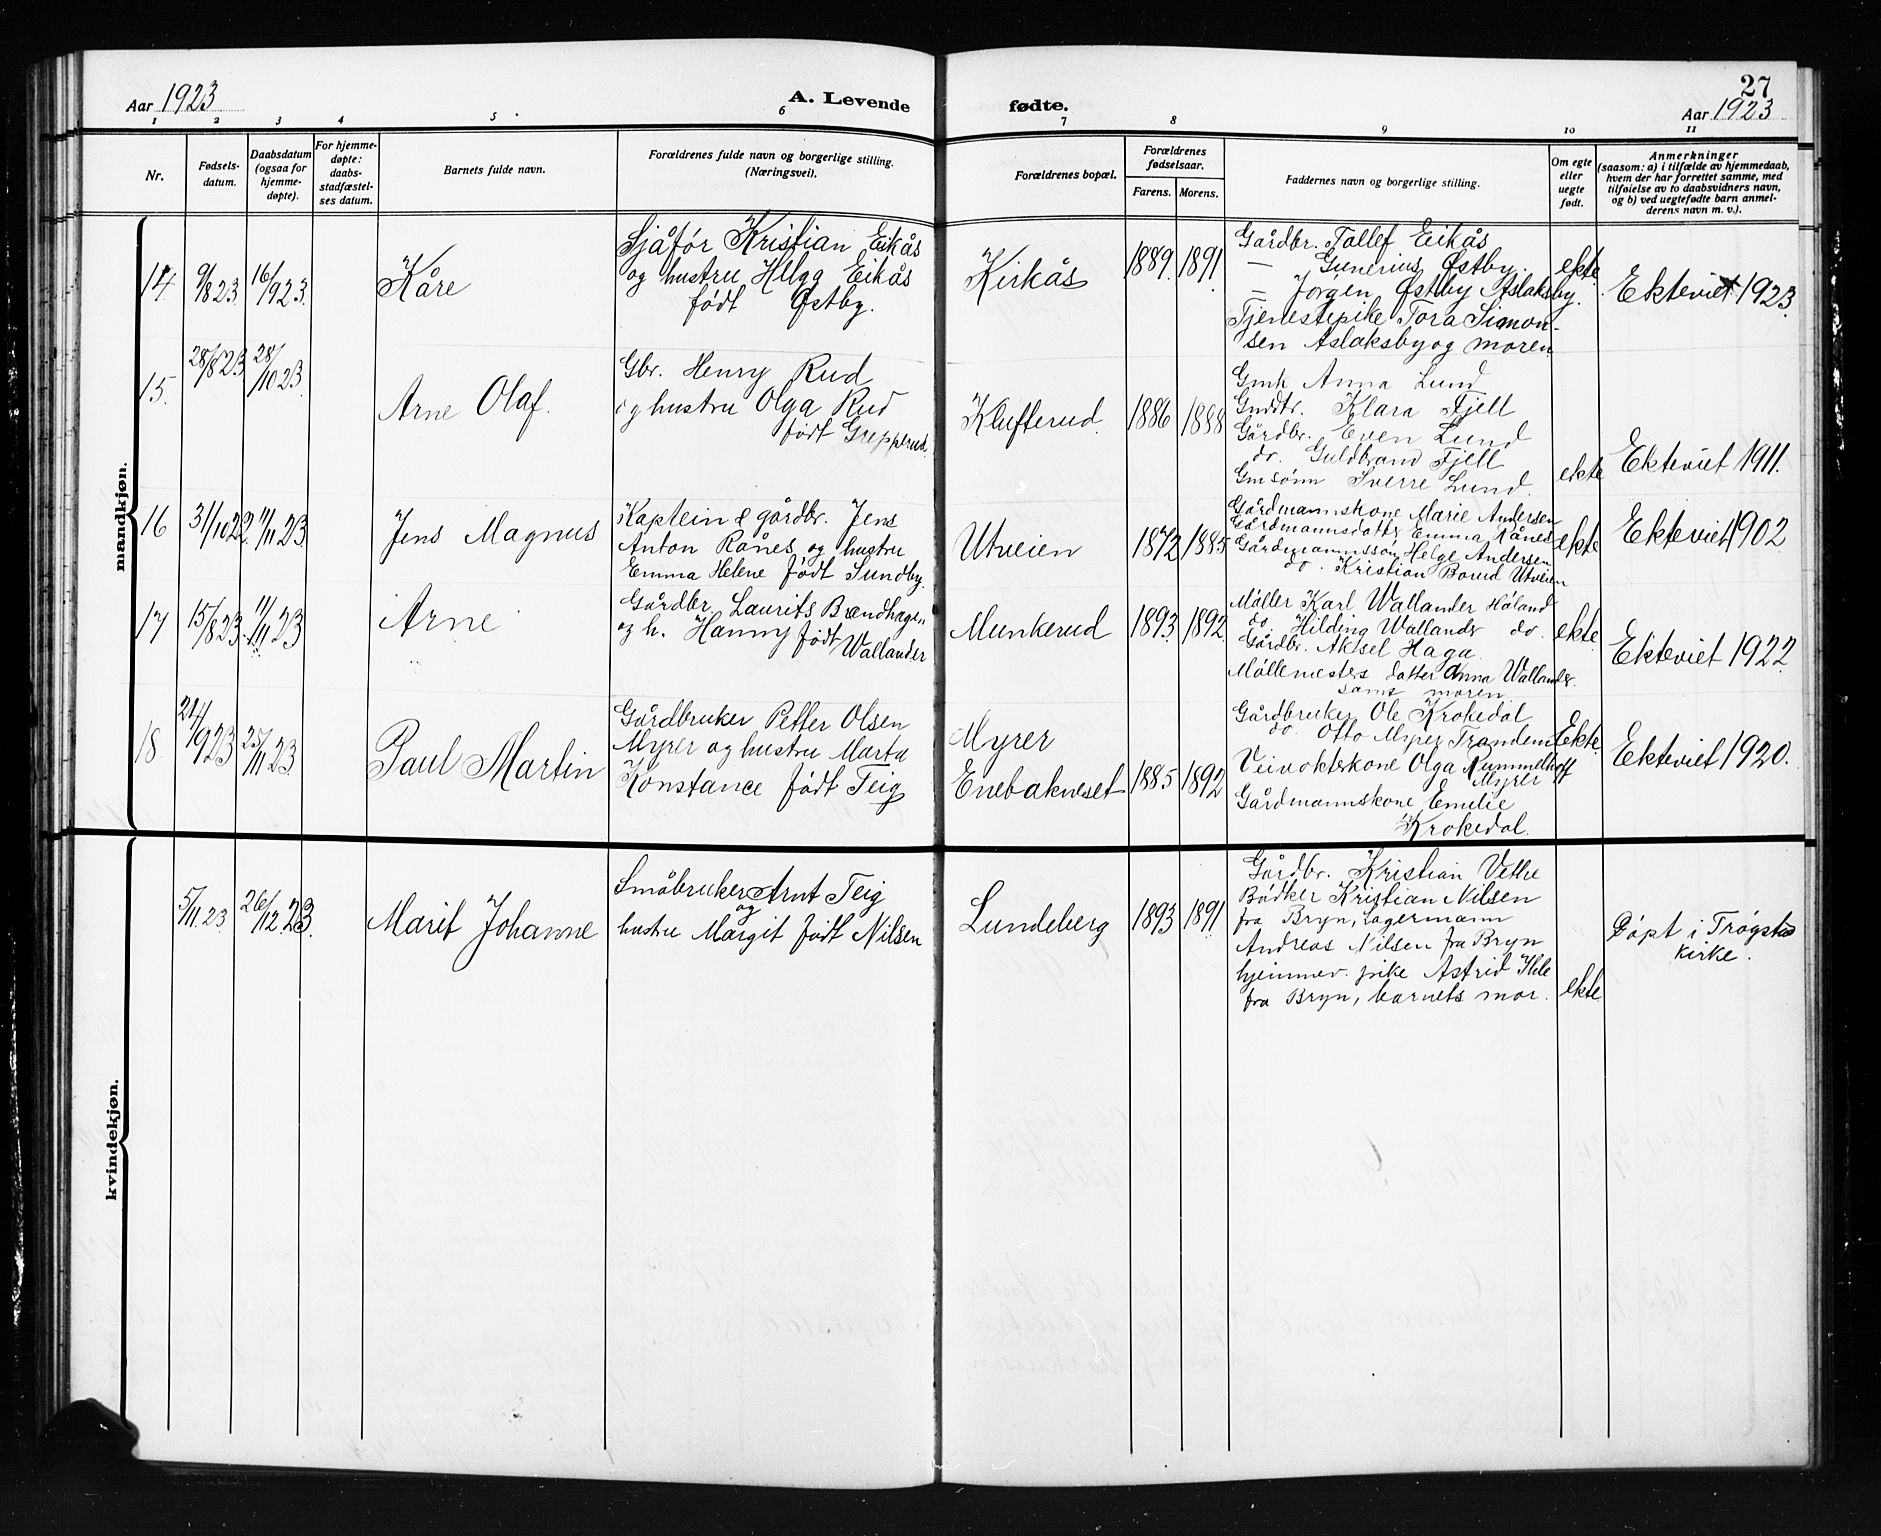 27
Aar 1923
A. Levende fødte.
Aar 1923
1 2 3 4 5 6 7 8 9 10 11
Nr.
Fødsels-
datum.
Daabsdatum
(ogsaa for
hjemme-
døpte).
For hjemme-
døpte:
daabs-
stadfæstel-
ses datum.
Barnets fulde navn.
Forældrenes fulde navn og borgerlige stilling.
(Næringsvei).
Forældrenes bopæl.
Forældrenes
fødselsaar.
Farens. Morens.
Faddernes navn og borgerlige stilling.
Om egte
eller
uegte
født.
Anmerkninger
(saasom: a) i tilfælde av hjemmedaab,
hvem der har forrettet samme, med
tilføielse av to daabsvidners navn,
og b) ved uegtefødte barn anmel-
derens navn m. v.).
mandkjøn.
14
9/8 23.
16/9 23.
Kåre
Sjåfør Kristian Eikås
og hustru Helga Eikås
født Østby.
Kirkås
1889. 1891.
Gårdbr. Tollef Eikås
— Gunerius Østby.
— Jørgen Østby Aslaksby.
Tjenestepike Tora Simon-
sen Aslaksby og moren
ekte.
Ekteviet 1923.
15.
28/8 23
28/10 23
Arne Olaf.
Gbr. Henry Rud
og hustru Olga Rud
født Grepperud.
Klufterud.
1886 1888
Gmk Anna Lund
Gmdtr. Klara Fjell
Gårdbr. Even Lund
do. Guldbrand Fjell
Gmsønn Sverre Lund.
ekte
Ekteviet 1911.
16
31/10 22
11/11 23
Jens Magnus
Kaptein & gårdbr. Jens
Anton Rånes og hustru
Emma Helene født Sundby.
Utveien
1872 1885
Gårdmannskone Marie Andersen
Gårdmannsdatter Emma Rånes
Gårdmannssøn Helge Andersen
do. Kristian Borud Utveien
ekte
Ekteviet 1902
17
15/8 23.
11/11 23
Arne
Gårdbr. Laurits Brændhagen
og h. Hanny født
Wallander
Munkerud
1893 1892
Møller Karl Wallander Høland
do. Hilding Wallander do.
Gårdbr. Aksel Haga
Møllemesters datter Anna Wallander.
samt moren
ekte
Ekteviet 1922
18
21/9 23
25/11 23
Paul Martin
Gårdbruker Petter Olsen
Myrer og hustru Marta
Konstance født Teig
Myrer
Enebakneset
1885 1892
Gårdbruker Ole Krokedal
do. Otto Myrer Trandem
Veivokterskone Olga Nummelhoff
Myrer
Gårdmannskone Emelie
Krokedal.
Ekte
Ekteviet 1920.
kvindekjøn.
5/11 23
26/12 23.
Marit Johanne
Småbruker Arnt Teig
og
hustru Margit født Nilsen
Lundeberg
1893 1891
Gårdbr. Kristian Vethe
Bødker Kristian Nilsen
fra Bryn, Lagermann
Andreas Nilsen fra Bryn
hjemmev. pike Astrid Ihle
fra Bryn, barnets mor.
ekte
Døpt i Trøgstad
kirke.